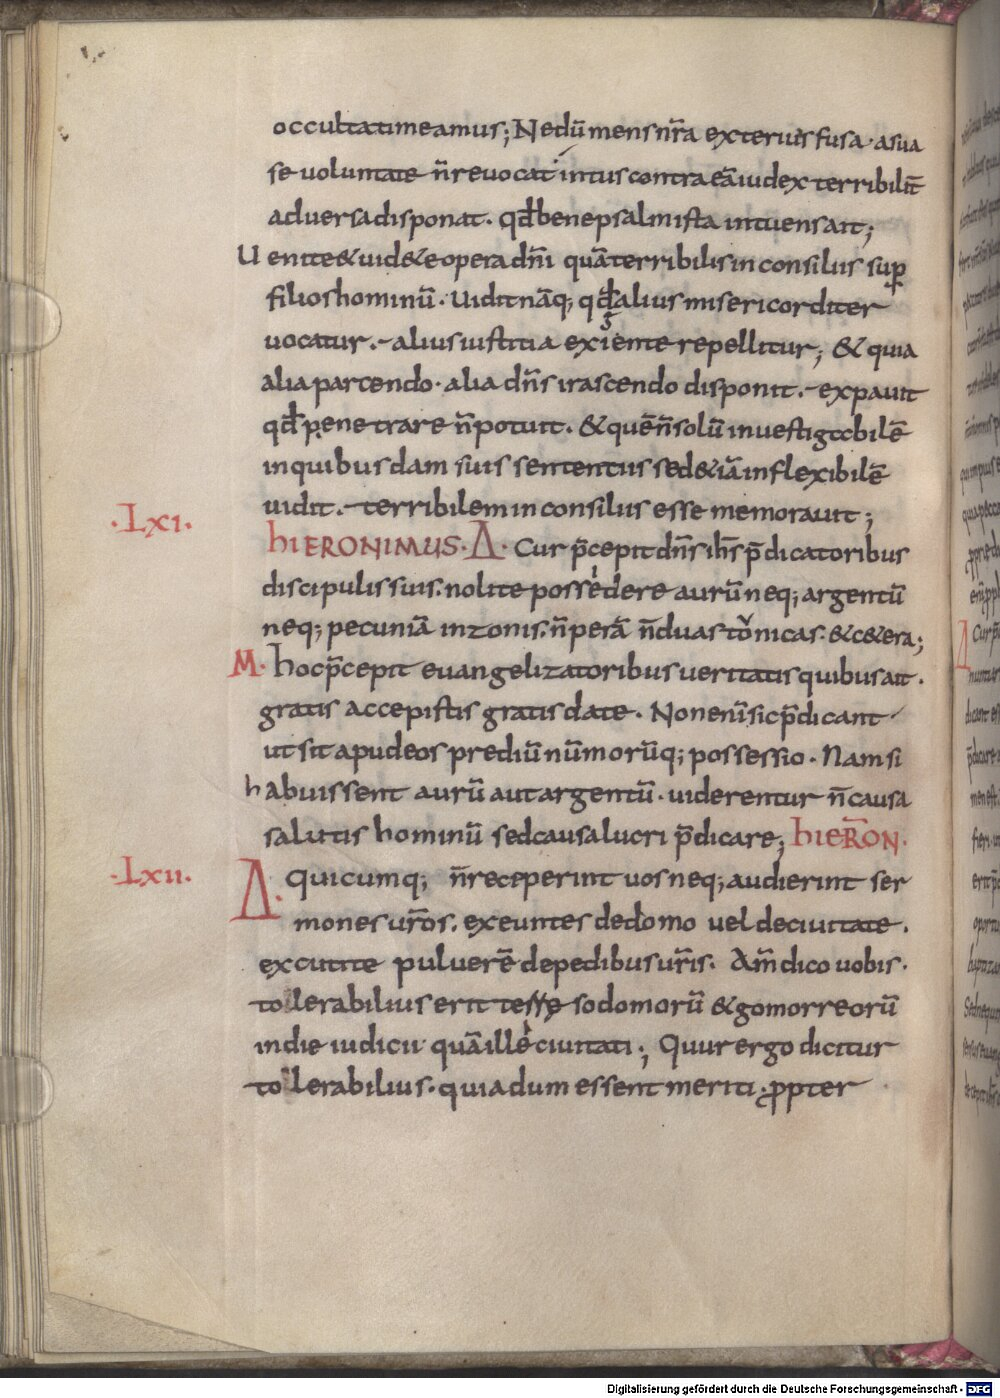 occultatimeamus; Nedū mens nr̄a exterius fusa · a sua
se voluntate n̄ revocat intus contra eā iudex terribilit̄
adversa disponat. qđ bene psalmista intuens ait;
Uenite & uid&e opera dn̄i quā terribilis in consiliis sup̲
filios hominū. Uidit nāq; qđ alius misericorditer
vocatur. alius iustitia exigente repellitur; & quia
alia parcendo · alia dn̄s irascendo disponit. expauit
qđ penetrare n̄ potuit. & quē n̄ solū investigabilē
in quibusdam suis sententiis sed &iā inflexibilē
uidit. terribilem in consiliis esse memorauit;
·Lxi.
hIERONIMUS. Δ. Cur p̄cepit dn̄s ih̄s p̄dicatoribus
discipulis suis. nolite possedere aurū neq; argentū
neq; pecuniā in zonis. n̄ perā n̄ duas tonicas. &c&era;
M. hoc p̄cepit evangelizatoribus veritatis quibus ait.
gratis accepistis gratis date. Non enī sic p̄dicant
ut sit apud eos prediū nūmorūq; possessio. Nam si
habuissent aurū aut argentū. uiderentur n̄ causa
salutis hominū sed causa lucri p̄dicare; hIERON.
·Lxii.
Δ. quicumq; n̄ receperint uos neq; audierint ser
mones ur̄os. exeuntes de domo vel de ciuitate.
excutite pulverē de pedibus ur̄is. Am̄ dico uobis.
tollerabilius erit terre sodomorū & gomorreorū
in die iudicii quā illę ciuitati; Quur ergo dicitur
tollerabilius. quia dum essent meriti p̲pter
Digitalisierung gefördert durch die Deutsche Forschungsgemeinschaft - DFG